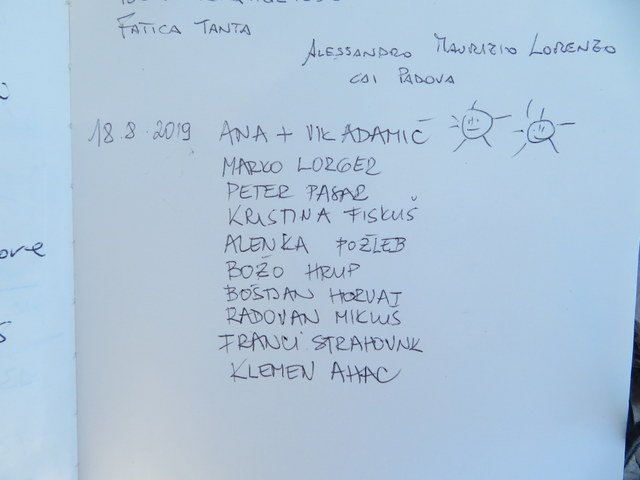 FATICA TANTA
ALESSANDRO MAURIZIO LORENZO
CAI PADOVA
18.8.2019 ANA + VIK ADAMIČ
MARKO LORGER
PETER PASAR
KRISTINA FISKUŠ
ALENKA POŽLEB
BOŽO HRUP
BOŠTJAN HORVAT
RADOVAN MIKLUŠ
FRANCI STRAHOVNK
KLEMEN AHAC